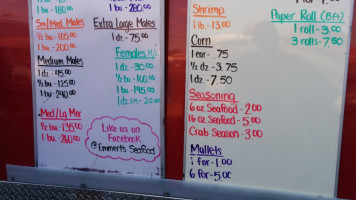 1 bu. -180
Sm/Med. Males
1/2 bu. -105
1 bu. -200
Medium Males
1 dz. -45
1/2 bu. -125
1 bu. -240
Med/Lg Mix
1/2 bu. -135
1 bu. -260
Extra Large Males
1 dz. -75
Females
1 dz. -30.00
1/2 bu. -100
1 bu. -195
1 dz SM -20
Like us on
Facebook
@Emmert's Seafood
Shrimp
1 lb. -13.00
Corn
1 ear - .75
1/2 dz. -3.75
1 dz. -7.50
Seasoning
6 oz Seafood -2.00
16 oz Seafood -5.00
Crab Season -3.00
Mallets
1 for -1.00
6 for -5.00
Paper Roll (8ft)
1 roll -3.00
3 rolls -7.50